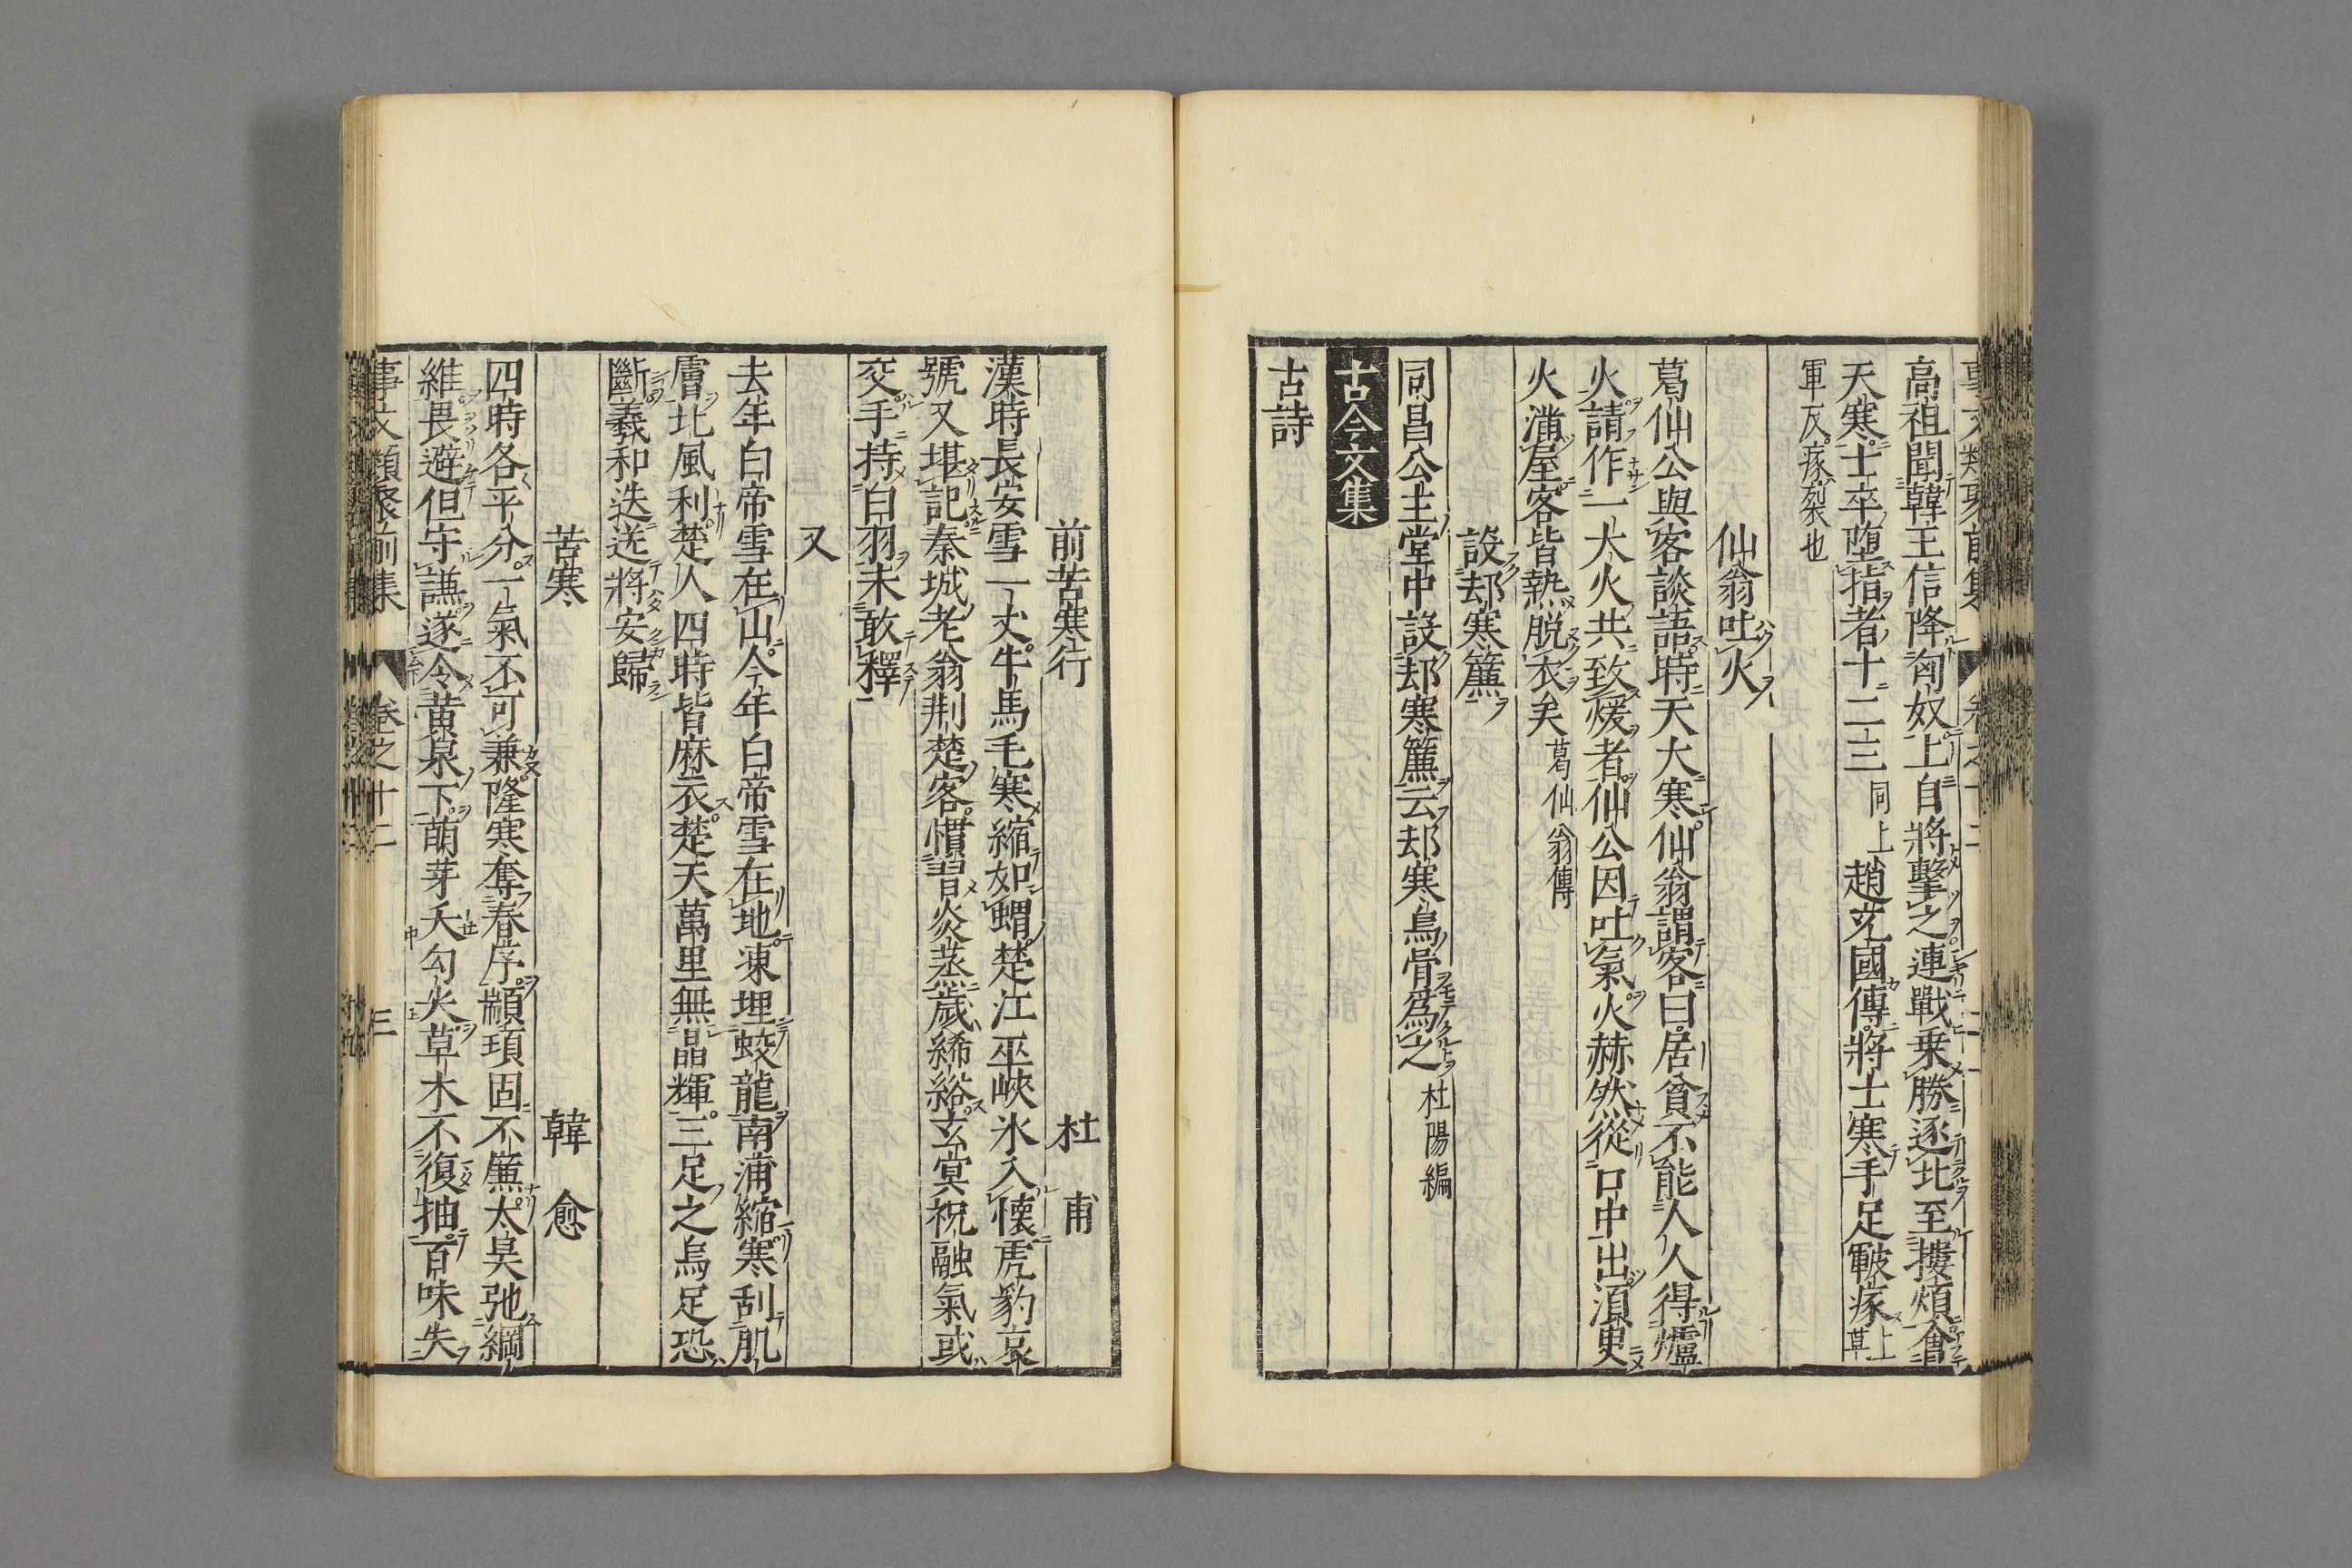 高祖聞韓王信降匈奴上自將擊之連戰乗勝逐北至摟煩會
天寒士卒墮指者十二三同上趙充國傳將士寒手足皸瘃上草
軍反瘃裂也
仙翁吐火
葛仙公與客談語時天大寒仙翁謂客曰居貧不能人人得爐
火請作一大火共致煖者仙公因吐氣火赫然從口中出湏臾
火滿屋客皆熱脫衣矣葛仙翁傳
設却寒簾
同昌公主堂中設却寒簾云却寒鳥骨為之杜陽編
古今文集
古詩
前苦寒行　杜甫
漢時長安雪一丈牛馬毛寒縮如蝟楚江巫峽氷入懐虎豹哀
號又堪記秦城老翁荆楚客慣習炎蒸歲絺綌玄冥祝融氣或
交手持白羽未敢釋
又
去年白帝雪在山今年白帝雪在地凍埋蛟龍南浦縮寒刮肌
膚北風利楚人四時皆麻衣楚天萬里無晶輝三足之烏足恐
斷羲和迭送將安歸
苦寒　韓愈
四時各平分一氣不可兼隆寒奪春序顓頊固不廉太昊弛綱
維畏避但守謙遂令黄泉下萌芽夭勾尖草木不復抽百味失
事文類聚前集　卷之十二　三